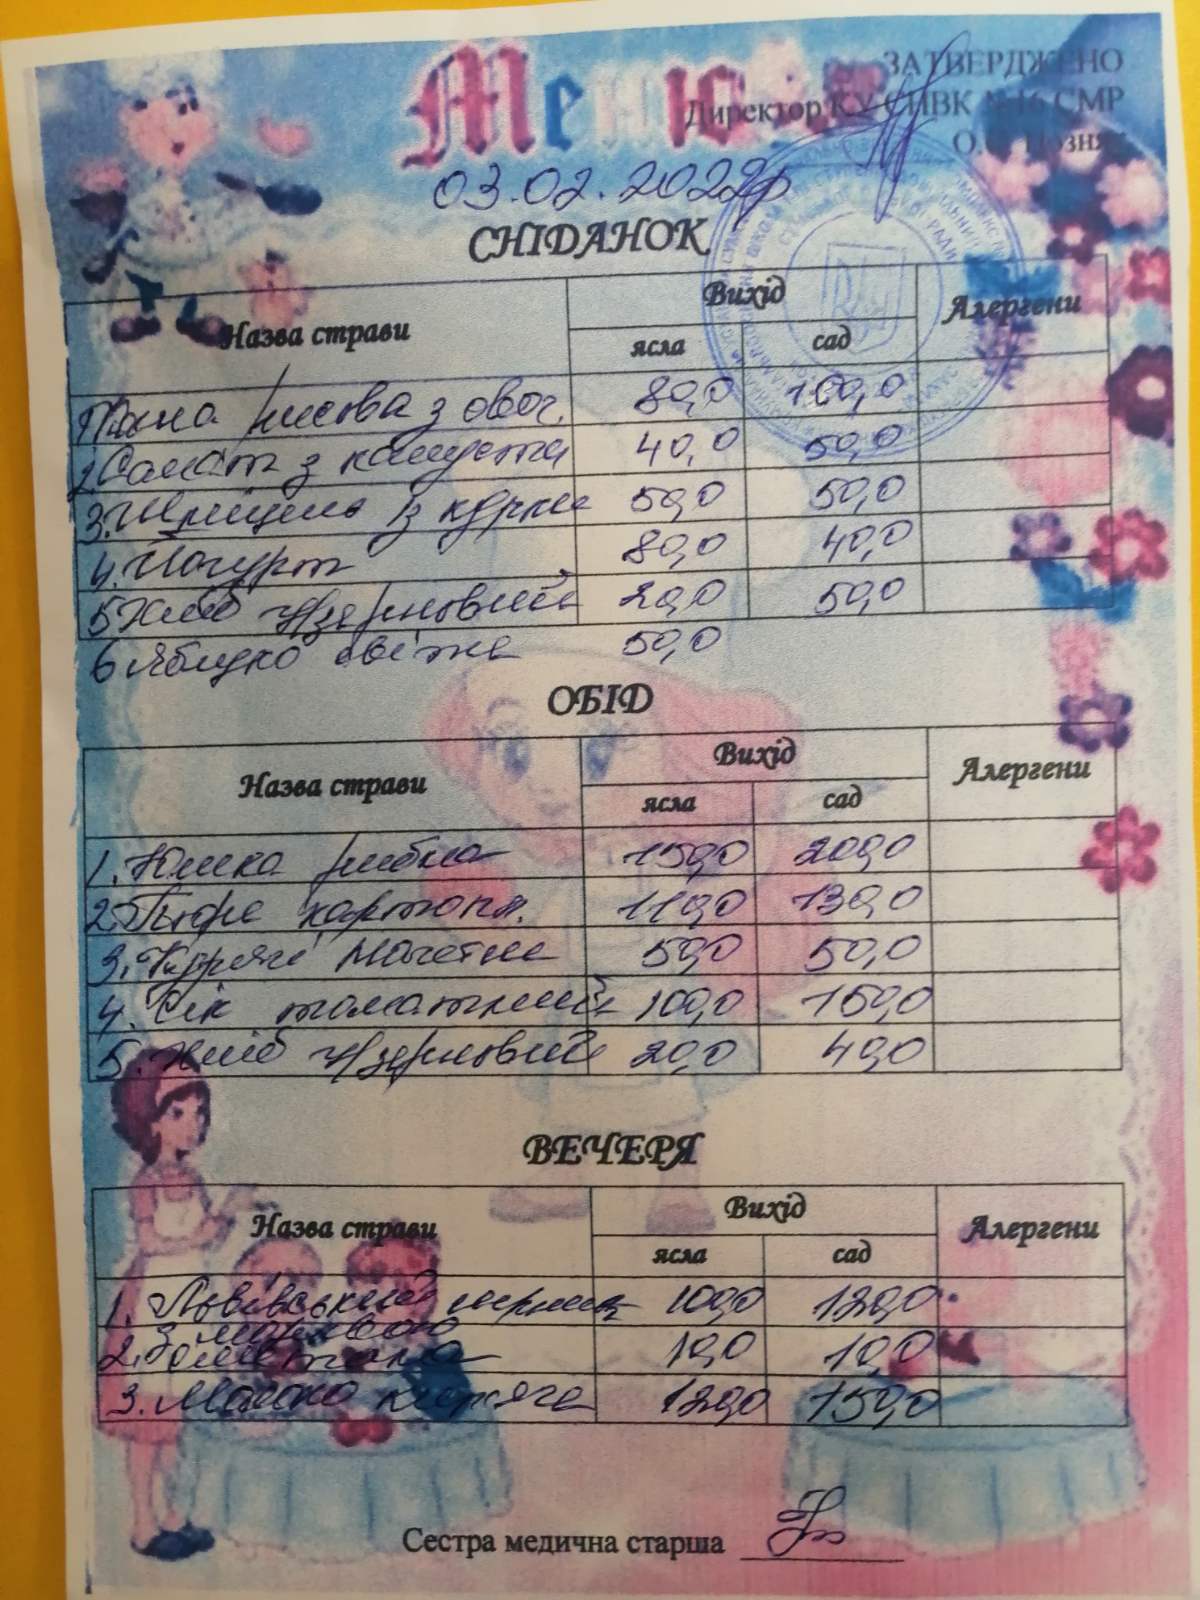 Меню
ЗАТВЕРДЖЕНО
Директор КУ СПВК №16 СМР
03.02.2022р
СНІДАНОК
Назва страви Вихід Алергени
ясла сад
Каша рисова з овоч. 80,0 100,0
2. Салат з капусти 40,0 50,0
3. Шніцель із курки 50,0 50,0
4. Йогурт 80,0 40,0
5. Хліб ц/зерновий 20,0 50,0
6. Яблуко свіже 50,0
ОБІД
Назва страви Вихід Алергени
ясла сад
1. Юшка рибна 150,0 200,0
2. Пюре картопл. 110,0 130,0
3. Курячі нагетси 50,0 50,0
4. Сік томатний 100,0 150,0
5. Хліб ц/зерновий 20,0 40,0
ВЕЧЕРЯ
Назва страви Вихід Алергени
ясла сад
1. Львівський сирник 100,0 120,0
з морквою
2. Сметана 10,0 10,0
3. Молоко кип'яче 120,0 150,0
Сестра медична старша